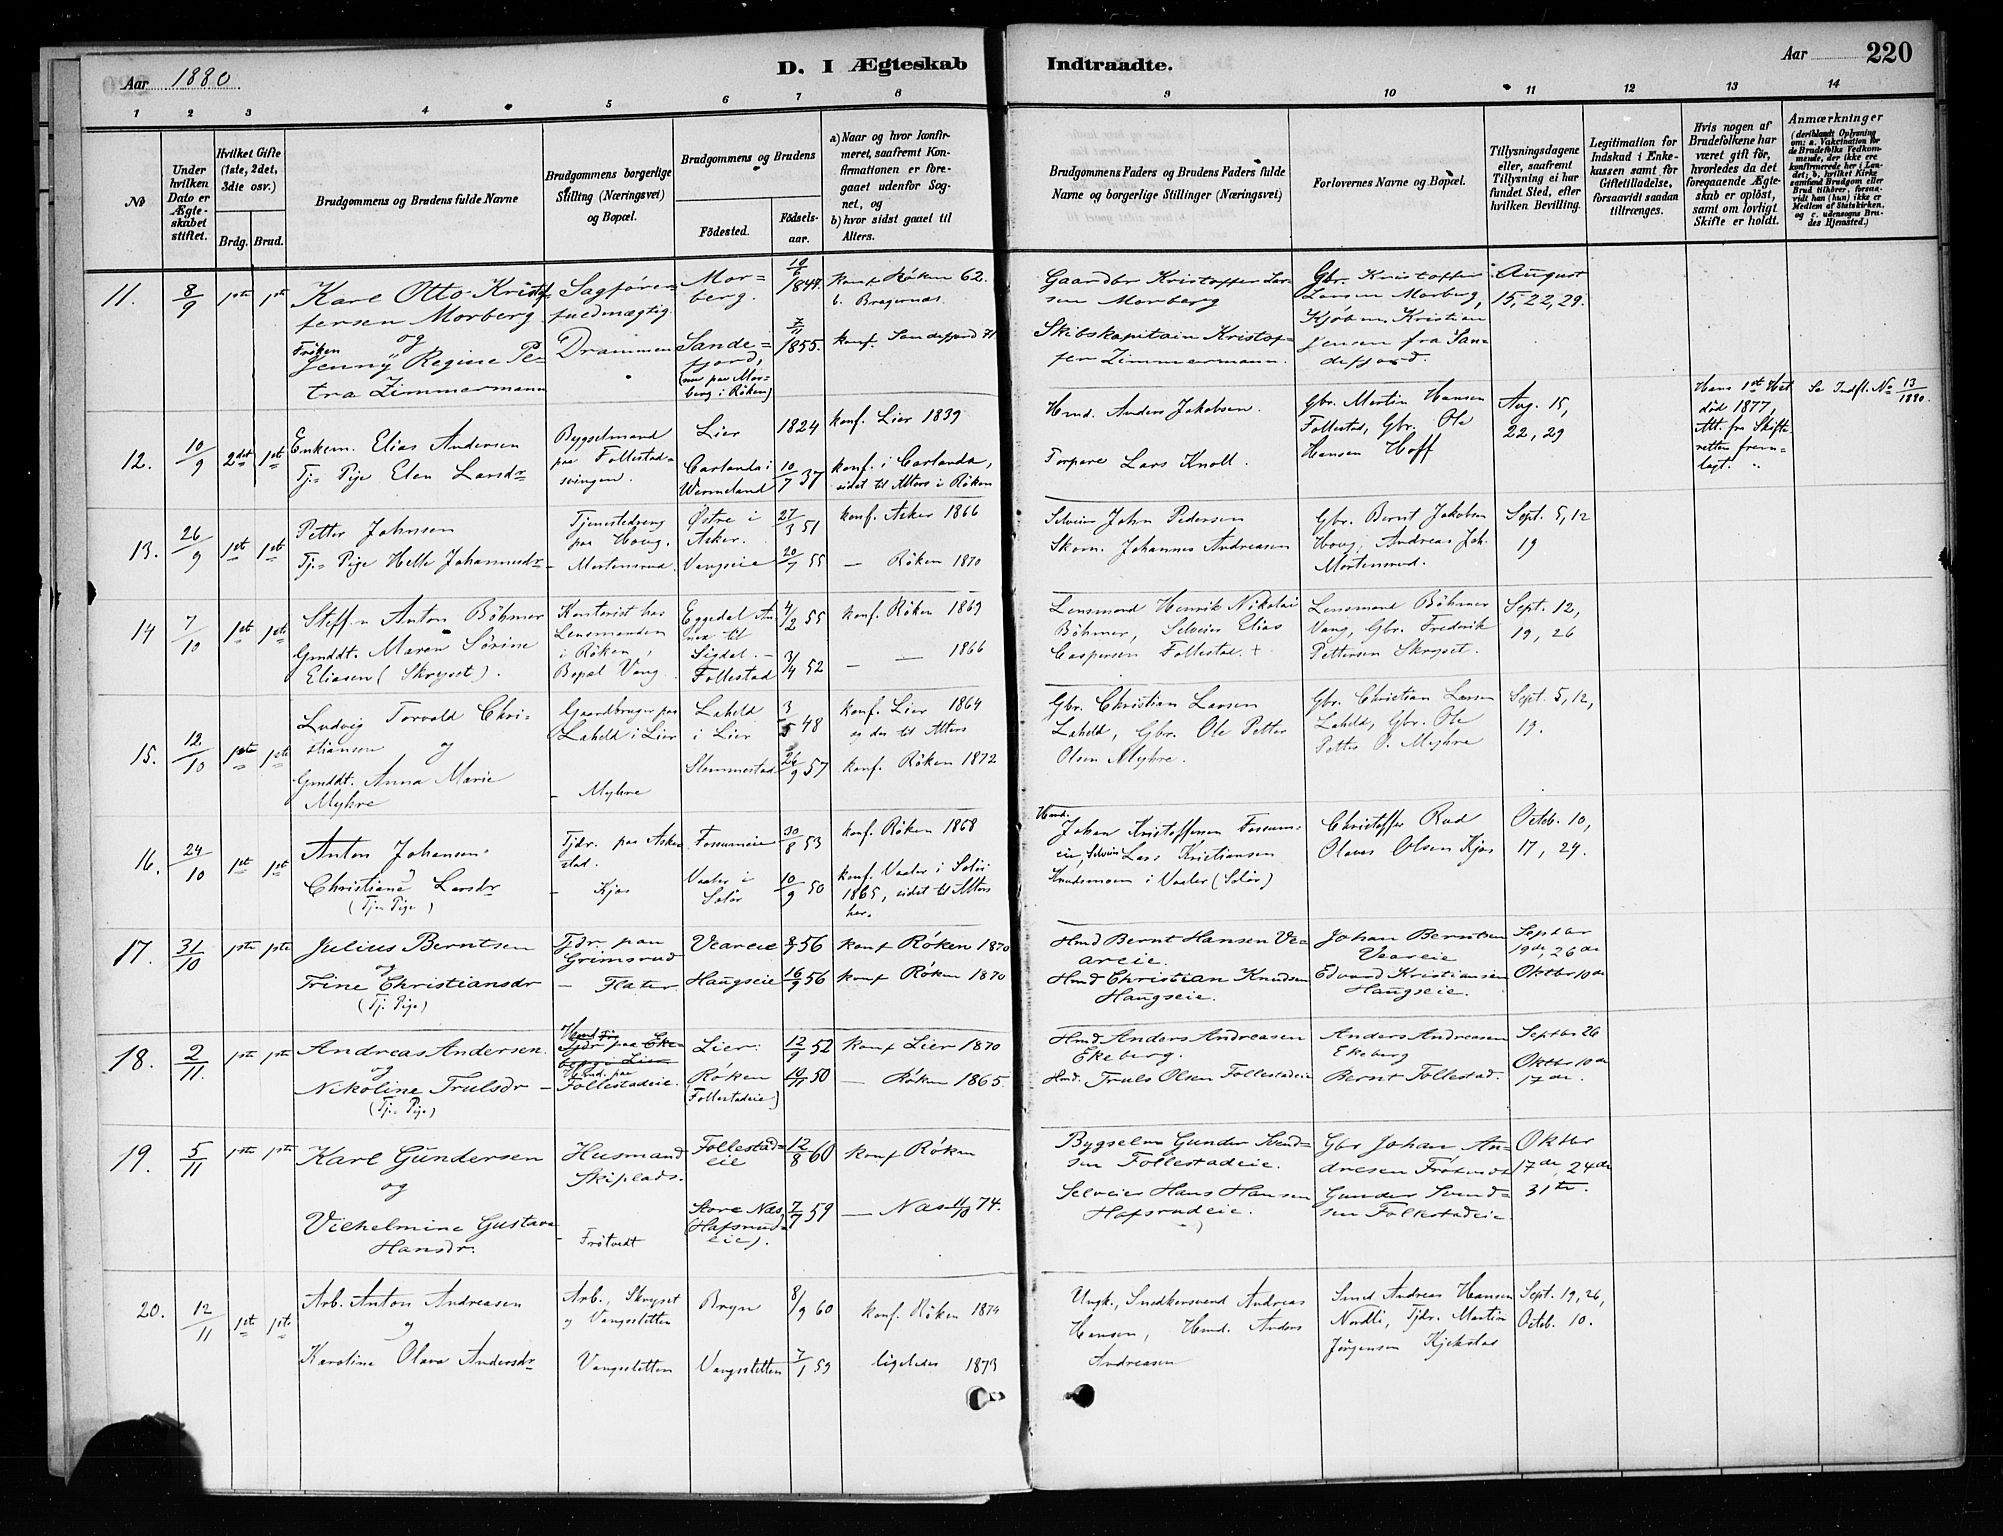 Aar 1880
D. I Ægteskab
Indtraadte.
Aar
220
1 2 3 4 5 6 7 8 9 10 11 12 13 14
No
Under hvilken Dato er Ægte-skabet stiftet.
Hvilket Gifte (1ste, 2det, 3die osv.)
Brdg. Brud.
Brudgommens og Brudens fulde Navne
Brudgommens borgerlige Stilling (Næringsvei) og Bopæl.
Brudgommens og Brudens
Födested.
Födsels-aar.
a) Naar og hvor konfir-meret, saafremt Kon-firmationen er fore-gaaet udenfor Sog-net, og
b) hvor sidst gaaet til Alters.
Brudgommens Faders og Brudens Faders fulde Navne og borgerlige Stillinger (Næringsvei)
Forlovernes Navne og Bopæl.
Tillysningsdagene eller, saafremt Tillysning ei har fundet Sted, efter hvilken Bevilling.
Legitimation for Indskud i Enke-kassen samt for Giftetilladelse, forsaavidt saadan tiltrænges.
Hvis nogen af Brudefolkene har været gift för, hvorledes da det foregaaende Ægte-skab er oplöst, samt om lovligt Skifte er holdt.
Anmærkninger
(deriblandt Oplysning om: a. Vaktcination for de Brudefolks Vedkom-mende, der ikke ere konfirmerede her i Lan-det; b. hvilket Kirke-samfund Brudgom eller Brud tilhörer, forsaa-vidt han (hun) ikke er Medlem af Statskirken, og c. udensogns Bru-des Hjemsted.)
11. 8/9 1ste 1ste
Karl Otto Kristof-
fersen Morberg
og
Fröken
Jenny Regine Pe-
tra Zimmermann
Sagförer-
fuldmægtig
Drammen
Mor-
berg.
Sande-
fjord,
(nu paa Mor-
berg i Röken)
1844.
7/11 1855.
konf. Röken 62.
b. Bragernæs.
konf. Sandefjord 71.
Gaardbr Kristoffer Lar-
sen Morberg
Skibskapitain Kristof-
fer Zimmermann.
Gbr. Kristoffer
Larsen Morberg,
Kjöbm. Kristian
Jensen fra San-
defjord.
August
15, 22, 29.
12. 10/9 2det 1ste
Enkem. Elias Andersen
Tj. Pige Elen Larsdr
Bygselmand
paa Follestad-
svingen.
Lier
Carlanda i
Wermeland
1824
10/7 37
konf. Lier 1839
konf. i Carlanda,
sidst til Alters i Röken
Hmd. Anders Jakobsen.
Torpare Lars Knoll.
Gbr. Martin Hansen
Follestad, Gbr. Ole
Hansen Hoff
Aug. 15,
22, 29
Hans 1ste Hst.
död 1877,
Att. fra Skifte
retten frem-
lagt.
Se Indfl. No 13/1880.
13. 26/9 1ste 1ste
Petter Johnsen
Tj. Pige Helle Johannesdr
Tjenestedreng
paa Hovg.
- Mortensrud
Östre i
Asker.
Vangseie
27/3 51
20/1 55
konf. Asker 1866
— Röken 1870
Selveier John Pedersen
Skom. Johannes Andreasen
Gbr. Bernt Jakobsen
Hovg, Andreas Joh.
Mortensrud.
Sept. 5, 12
19
14 7/10 1ste 1ste
Steffen Anton Böhmer
Gmddt. Maren Sörine
Eliasen (Skryset).
Kontorist hos
Lensmanden
i Röken,
Bopæl Vang.
Eggedal An-
nex til
Sigdal. —
Follestad
4/2 55
3/4 52
konf. Röken 1869
— — 1866
Lensmand Henrik Nikolai
Böhmer, Selveier Elias
Caspersen Follestad. +
Lensmand Böhmer
Vang, Gbr. Fredrik
Pettersen Skryset.
Sept. 12,
19, 26
15. 12/10 1ste 1ste
Ludvig Torvald Chri-
stiansen
og
Gmddt. Anna Marie
Myhre
Gaardbruger paa
Laheld i Lier
- Myhre
Laheld
i Lier
Slemmestad
3/5 48
26/9 57
konf. Lier 1864
konf. Röken 1872
Gbr. Christian Larsen
Laheld, Gbr. Ole Petter
Olsen Myhre.
Gbr. Christian Larsen
Laheld, Gbr. Ole
Petter O. Myhre
Sept. 5, 12,
19.
16. 24/10 1ste 1ste
Anton Johansen
Christiane Larsdr
(Tje. Pige)
Tjdr. paa Asker
stad.
- Kjos
Fossumeie
Vaaler i
Solör
30/8 53
10/9 50
konf. Röken 1868
konf. Vaaler i Solör
1865, sidst til Alters
her.
Hmd. Johan Kristoffersen Fossum-
eie, Selveier Lars Kristiansen
Knudsmoen i Vaaler (Solör)
Christoffer Rud
Olaves Olsen Kjos
Octob. 10,
17, 24.
17. 31/10 1ste 1ste
Julius Berntsen
og
Trine Christiansdr
(Tj. Pige)
Tjdr. paa
Grimsrud
- Flater
Veareie
Haugseie
56
16/9 56
konf Röken 1870
konf Röken 1870
Hmd Bernt Hansen Ve-
areie.
Hmd Christian Knudsen
Haugseie.
Johan Berntsen
Veareie
Edvard Kristiansen
Haugseie.
Septbr
19de, 26de
Oktbr 10de
18. 2/11. 1ste 1ste
Andreas Andersen.
og
Nikoline Trulsdr
(Tj. Pige)
Hmd. paa
- Follestadeie.
Lier.
Röken
(Follestadeie)
12/9 52
10/11 50
konf Lier 1870
— Röken 1865.
Hmd Anders Andreasen
Ekeberg.
Hmd. Truls Olsen Follestadeie
Anders Andreasen
Ekeberg
Bernt Follestad.
Septbr 26
Oktbr 10de
17de.
19. 5/11 1ste 1ste
Karl Gundersen
og
Vilhelmine Gustava
Hansdr.
Husmand
Skiplads.
- Frötvedt
Follestad-
eie
Store Næs
(Hafsrud-
eie).
12/8 60
7/7 59
konf Röken
— Næs 11/10 74.
Bygselm Gunder Svend-
sen Follestadeie.
Selveier Hans Hansen
Hafsrudeie.
Gbr Johan An-
dresen Frötvedt
Gunder Svend-
sen Follestadeie
Oktbr
17de, 24de
31te.
20. 12/11 1ste 1ste
Arb. Anton Andreasen
og
Karoline Olava Andersdr
Arb., Skryset
og Vangsstetten
Vangsstetten
Bryn
Vangsstetten
8/9 60
7/1 59
konf. Röken 1874
ligeledes 1873
Ungk., Snedkersvend Andreas
Hansen, Hmd. Anders
Andreasen
Smed Andreas Hansen
Nordli, Tjdr. Martin
Jörgensen Kjekstad
Sept. 19, 26,
Octob. 10.